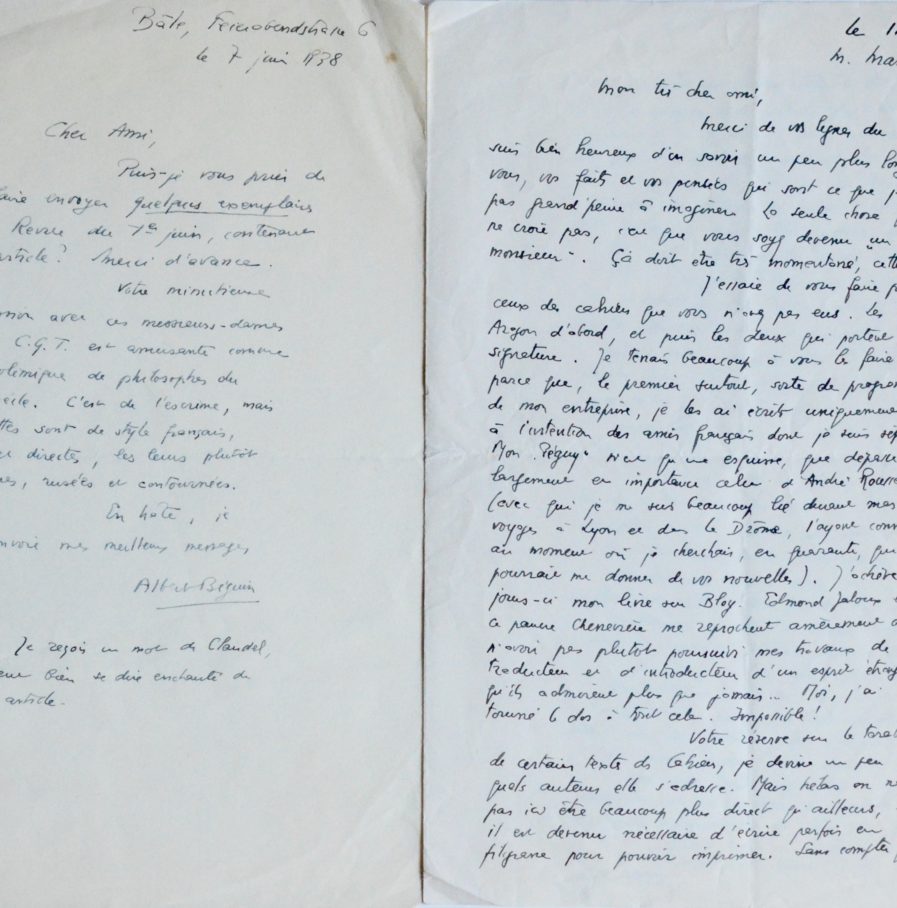 Bâle, Feierabendstrasse 6
le 7 juin 1938
Cher Ami,
Puis-je vous prier de
faire envoyer quelques exemplaires
Revue du 1er juin, contenant
article? Merci d'avance.
Votre minutieuse
avec ces messieurs-dames
C.G.T. est amusante comme
polémique de philosophes du
C'est de l'escrime, mais
sont de style français,
directes, les leurs plutôt
rusées et contournées.
En hâte, je
envoie mes meilleurs messages
Albert Béguin
Je reçois un mot de Claudel,
veut bien se dire enchanté de
article.
le 1
M. Ma
Mon très cher ami,
Merci de vos lignes du
suis bien heureux d'en savoir un peu plus
vous, vos faits et vos pensées qui sont ce que j
pas grand'peine à imaginer. La seule chose
ne croie pas, c'est que vous soyez devenu "un
monsieur". Çà doit être très momentané, cette
J'essaie de vous faire
ceux des cahiers que vous n'avez pas eus. Les
Aragon d'abord, et puis les deux qui portent
signature. Je tenais beaucoup à vous les faire
parce que, le premier surtout, sorte de
de mon entreprise, je les ai écrit uniquement
à l'intention des amis français dont je suis
Mon "Péguy" n'est qu'une esquisse, que
largement en importance celui d'André
(avec qui je me suis beaucoup lié durant mes
voyages à Lyon et dans la Drôme, l'ayant
au moment où je cherchais, en quarante, qui
pourrait me donner de vos nouvelles). J'achève
jours-ci mon livre sur Bloy. Edmond Jaloux
ce pauvre Chenevière me reprochent amèrement
n'avoir pas plutôt poursuivi mes travaux de
traducteur et d'introducteur d'un esprit
qu'ils admirent plus que jamais... Moi, j'ai
tourné le dos à tout cela. Impossible!
Votre réserve sur le
de certains texte des Cahiers, je devine un peu
quels auteurs elle s'adresse. Mais hélas on
pas ici être beaucoup plus direct qu'ailleurs,
il est devenu nécessaire d'écrire parfois en
filigrane pour pouvoir imprimer. Sans compter